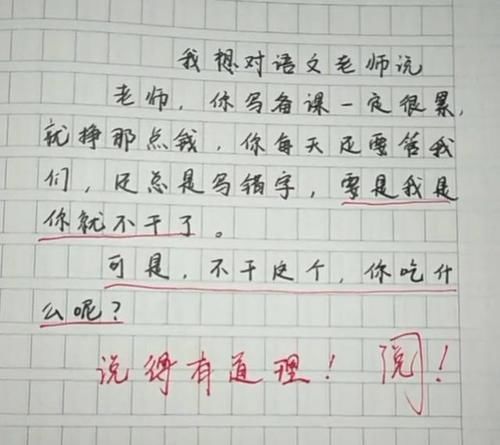 我想对语文老师说
老师，你写备课一定很累，
就挣那点钱，你每天还要管我
们，还总是写错字，要是我是
你就不干了。
可是，不干这个，你吃什
么呢？
说得有道理！ 阅！